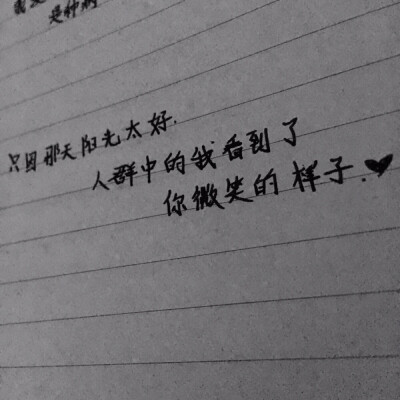 是种病
只因那天阳光太好.
人群中的我看到了
你微笑的样子.♥